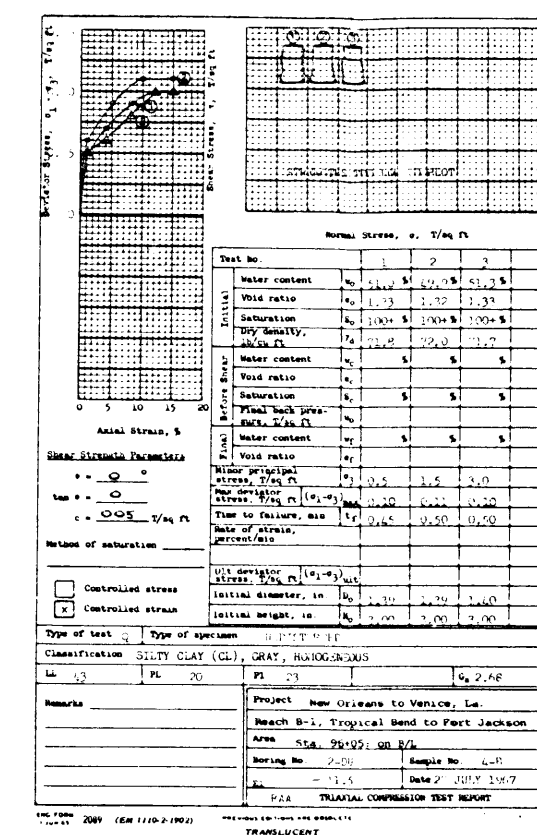 Deviator Stress, σ1 - σ3, T/sq ft
Shear Stress, τ, T/sq ft
1 2 3
Normal Stress, σ, T/sq ft
0 5 10 15 20
Axial Strain, %
Test No. 1 2 3
Initial
Water content w₀ % 49.9 % 51.3 %
Void ratio e₀ 1.33 1.32 1.33
Saturation S₀ 100+ % 100+ % 100+ %
Dry density, lb/cu ft γd 71.8 72.0 71.7
Before Shear
Water content wc % % %
Void ratio ec
Saturation Sc % % %
Final back pressure, T/sq ft u₀
Final
Water content wf % % %
Void ratio ef
Minor principal stress, T/sq ft σ3 0.5 1.5 3.0
Max deviator stress, T/sq ft (σ1-σ3)max 0.10 0.11 0.10
Time to failure, min tf 0.45 0.50 0.50
Rate of strain, percent/min
Ult deviator stress, T/sq ft (σ1-σ3)ult
Initial diameter, in. D₀ 1.39 1.39 1.40
Initial height, in. H₀ 3.00 3.00 3.00
Shear Strength Parameters
φ = 0 °
tan φ = 0
c = 005 T/sq ft
Method of saturation
Controlled stress
x Controlled strain
Type of test Q Type of specimen
Classification SILTY CLAY (CL), GRAY, HOMOGENEOUS
LL 43 PL 20 PI 23 Gs 2.68
Remarks
Project New Orleans to Venice, La.
Reach B-1, Tropical Bend to Fort Jackson
Area Sta. 96+05; on B/L
Boring No. Sample No.
El Date JULY 1967
TRIAXIAL COMPRESSION TEST REPORT
ENG FORM 2089 (EM 1110-2-1902) PREVIOUS EDITIONS ARE OBSOLETE
TRANSLUCENT